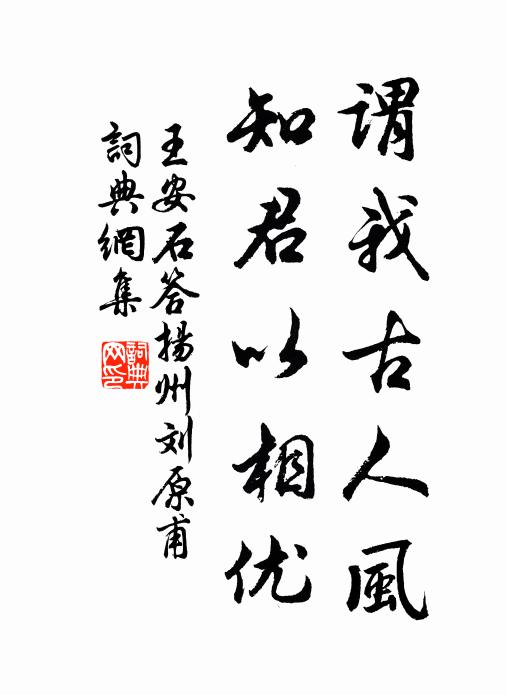 謂我古人風
知君以相优
王安石答揚州刘原甫
詞典網集
詞典网印